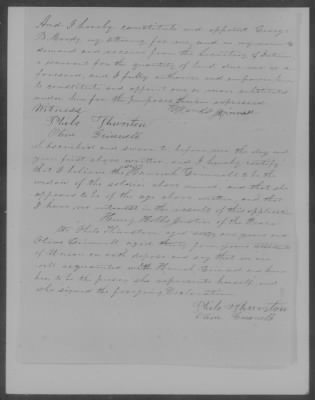 And I hereby constitute and appoint George
B. my attorney for me and in my name to
demand and receive from the Secretary of Interior
a warrant for the quantity of land due me as
foresaid, and I fully authorize and empower him
to constitute and appoint one or more substitutes
under him for the purposes therein expressed
Witness
Philo Thurston
Olive
Subscribed and sworn to before me the day and
year first above written and I hereby certify
that I believe the said Hannah to be the
widow of the soldier above named, and that she
appears to be of the age above written, and that
I have no interest in the result of this application
Henry Justice of the Peace
We Philo Thurston aged one years and
Olive aged years
of Union on oath depose and say that we are
well acquainted with Hannah and know
her to be the person she represents herself, and
who signed the foregoing Declaration
Philo Thurston